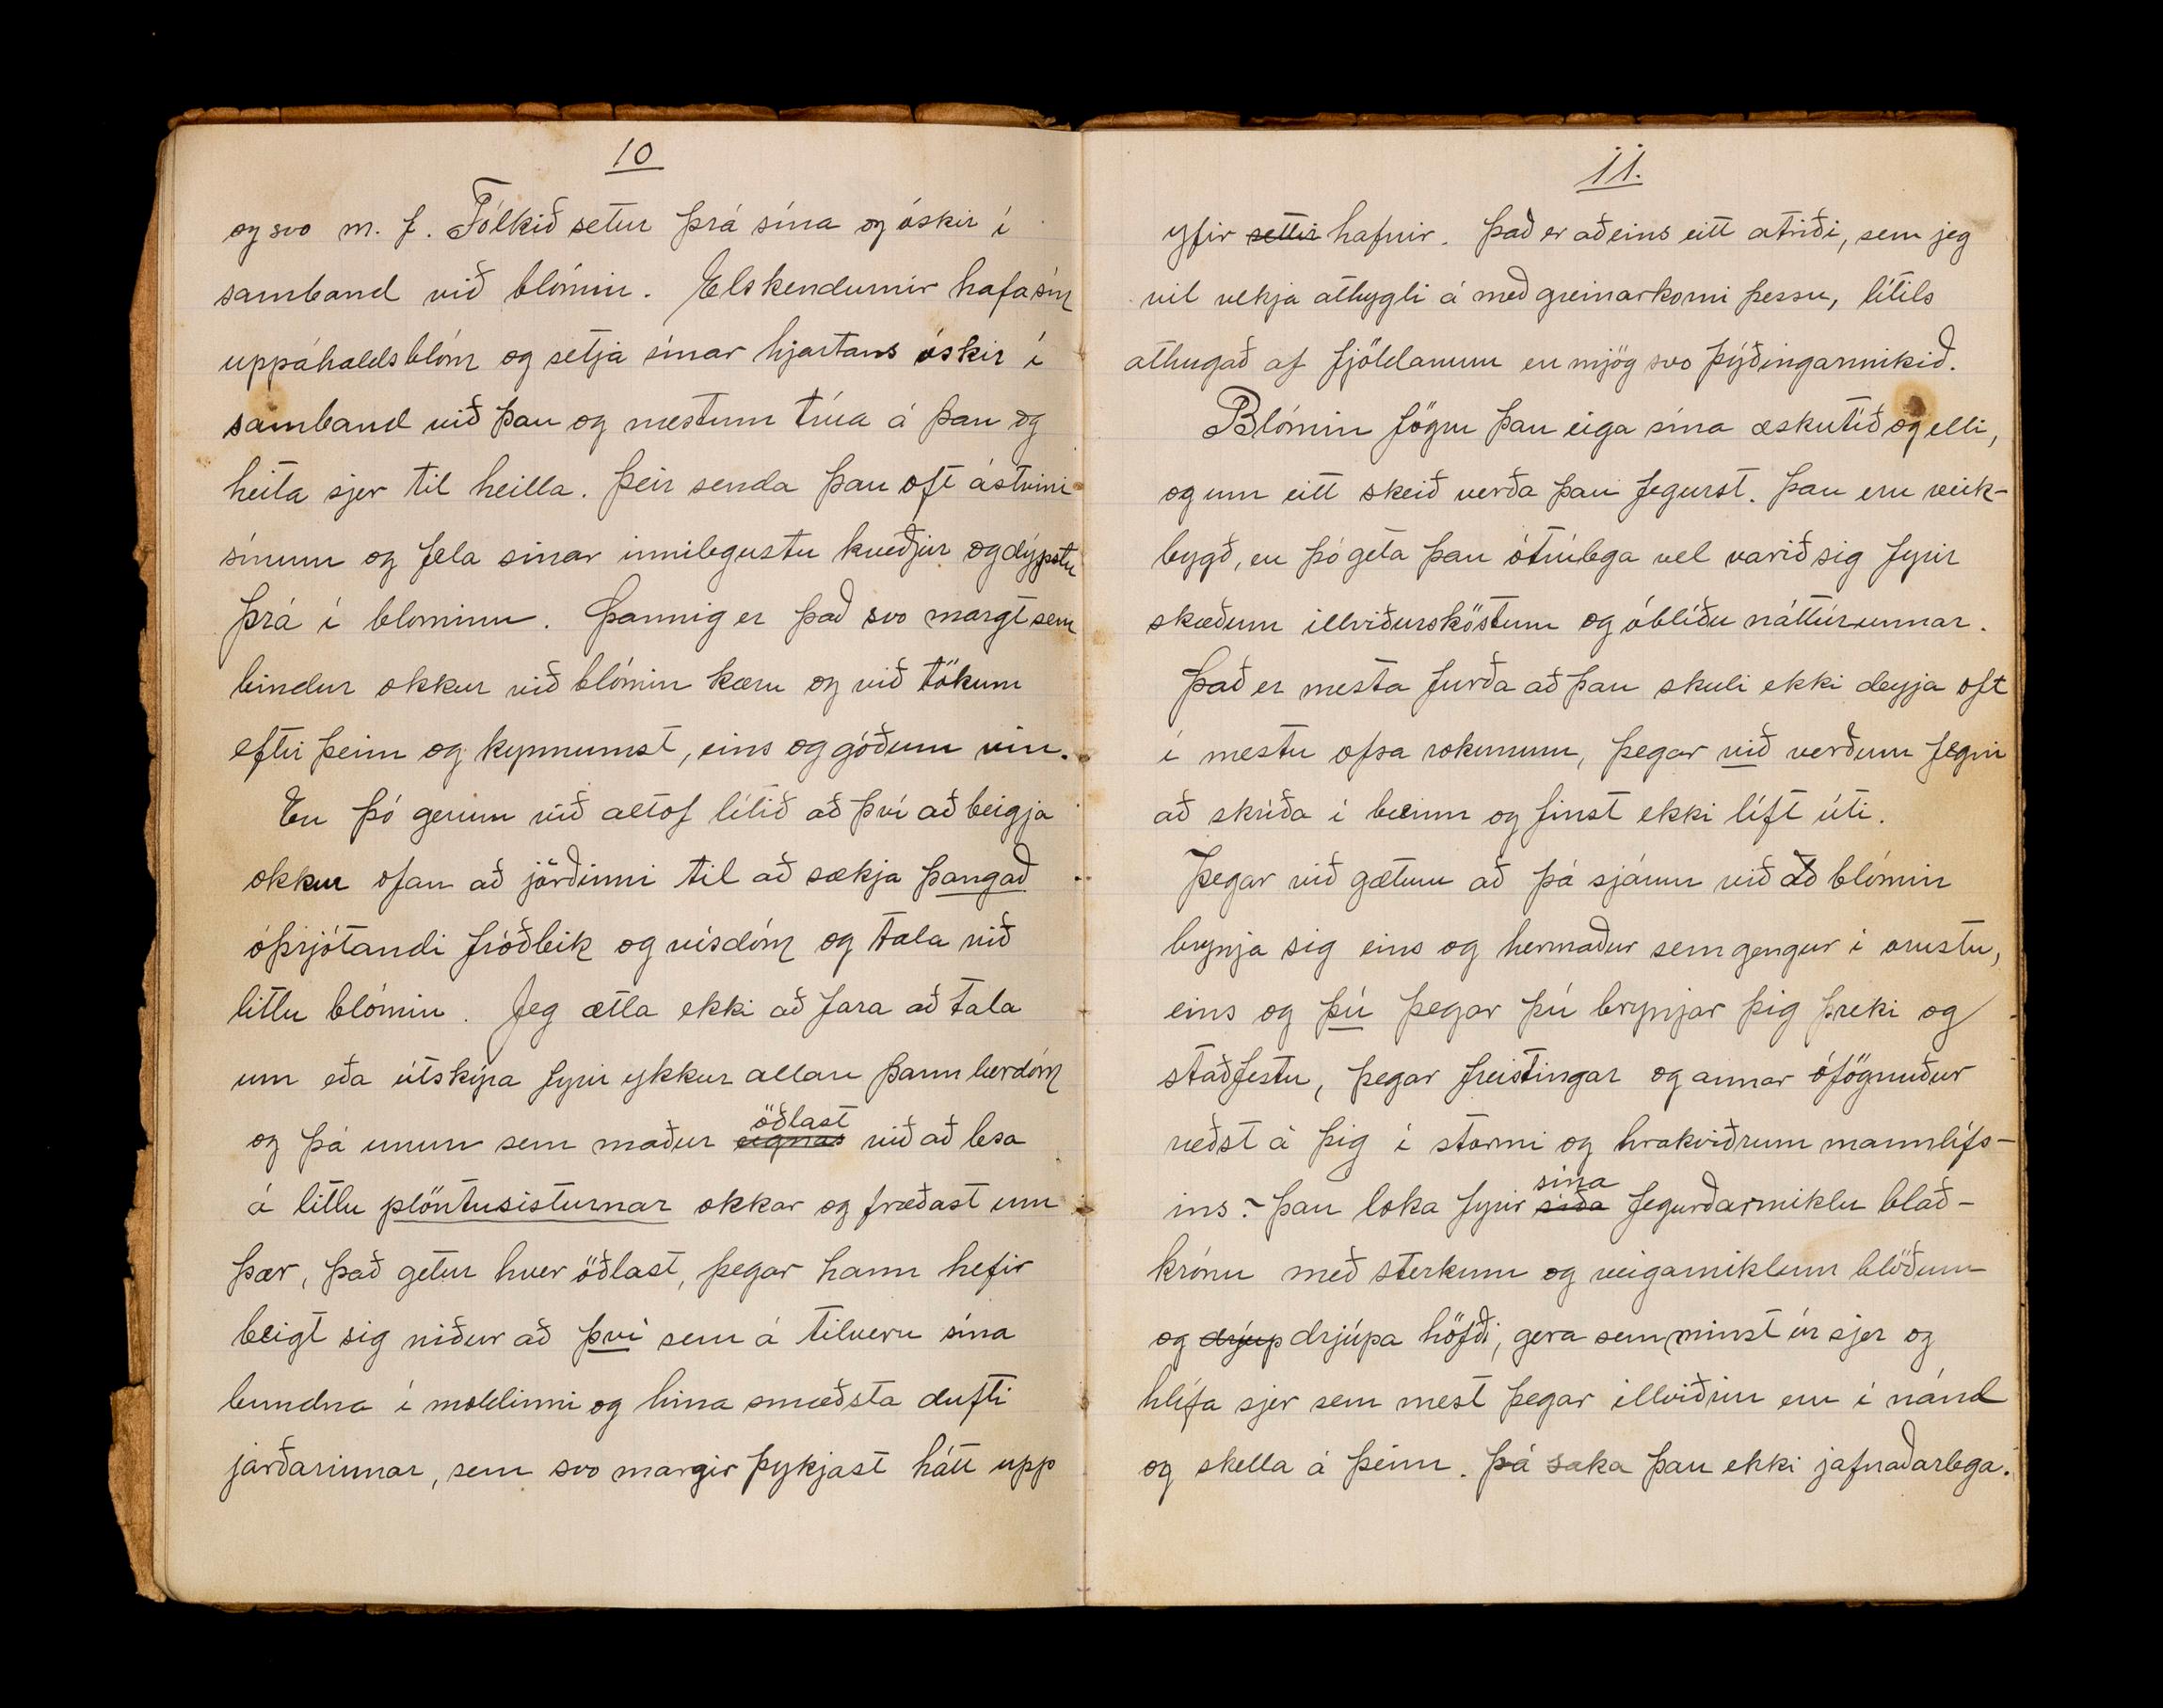 10
og svo m. f. Fólkið setur þrá sína og óskir í
samband við blómin. Elskendurnir hafa sín
uppáhaldsblóm og setja sínar hjartans óskir í
samband við þau og mestum trúa á þau og
heita sjer til heilla. Þeir senda þau oft ástvini
sínum og fela sínar innilegustu kveðjur og dýpstu
þrá í blominu. Þannig er það svo margt sem
bindur okkur við blómin kæru og við tökum
eftir þeim og kynnumst, eins og góðum vin.
En þó gerum við altof lítið að því að beigja
okkur ofan að jörðinni til að sækja þangað
óþrjótandi fróðleik og vísdóm og tala við
litlu blómin. Jeg ætla ekki að fara að tala
um eða útskýra fyrir ykkur allan þann lærdóm
og þá unun sem maður eignas öðlast við að lesa
á litlu plöntusisturnar okkar og fræðast um
þær, það getur hver öðlast, þegar hann hefir
beigt sig niður að því sem á tilveru sína
bundna í moldinni og hina smæðsta dufti
jarðarinnar, sem svo margir þykjast hátt upp
11.
yfir settir hafnir. Það er aðeins eitt atriði, sem jeg
vil vekja athygli á með greinarkorni þessu, lítils
athugað af fjöldanum en mjög svo þýðingarmikið.
Blómin fögru þau eiga sína æskutíð og elli,
og um eitt skeið verða þau fegurst. Þau eru veik-
bygð, en þó geta þau ótrúlega vel varið sig fyrir
skæðum illviðursköstum og óblíðu náttúrunnar.
Það er mesta furða að þau skuli ekki deyja oft
í mestu ofsa rokunum, þegar við verðum fegnir
að skríða í bæinn og finst ekki líft úti.
Þegar við gætum að þá sjáum við að blómin
brynja sig eins og hermaður sem gengur í orustu,
eins og þú þegar þú brynjar þig þreki og
staðfestu, þegar freistingar og annar ófögnuður
ræðst á þig í stormi og hrakviðrum mannlífs-
ins. - Þau loka fyrir siða sína fegurðarmiklu blað-
krónu með sterkum og veigamiklum blöðum
og drjúp drjúpa höfði, gera sem minst úr sjer og
hlífa sjer sem mest þegar illviðrin eru í nánd
og skella á þeim. Þá saka þau ekki jafnaðarlega.